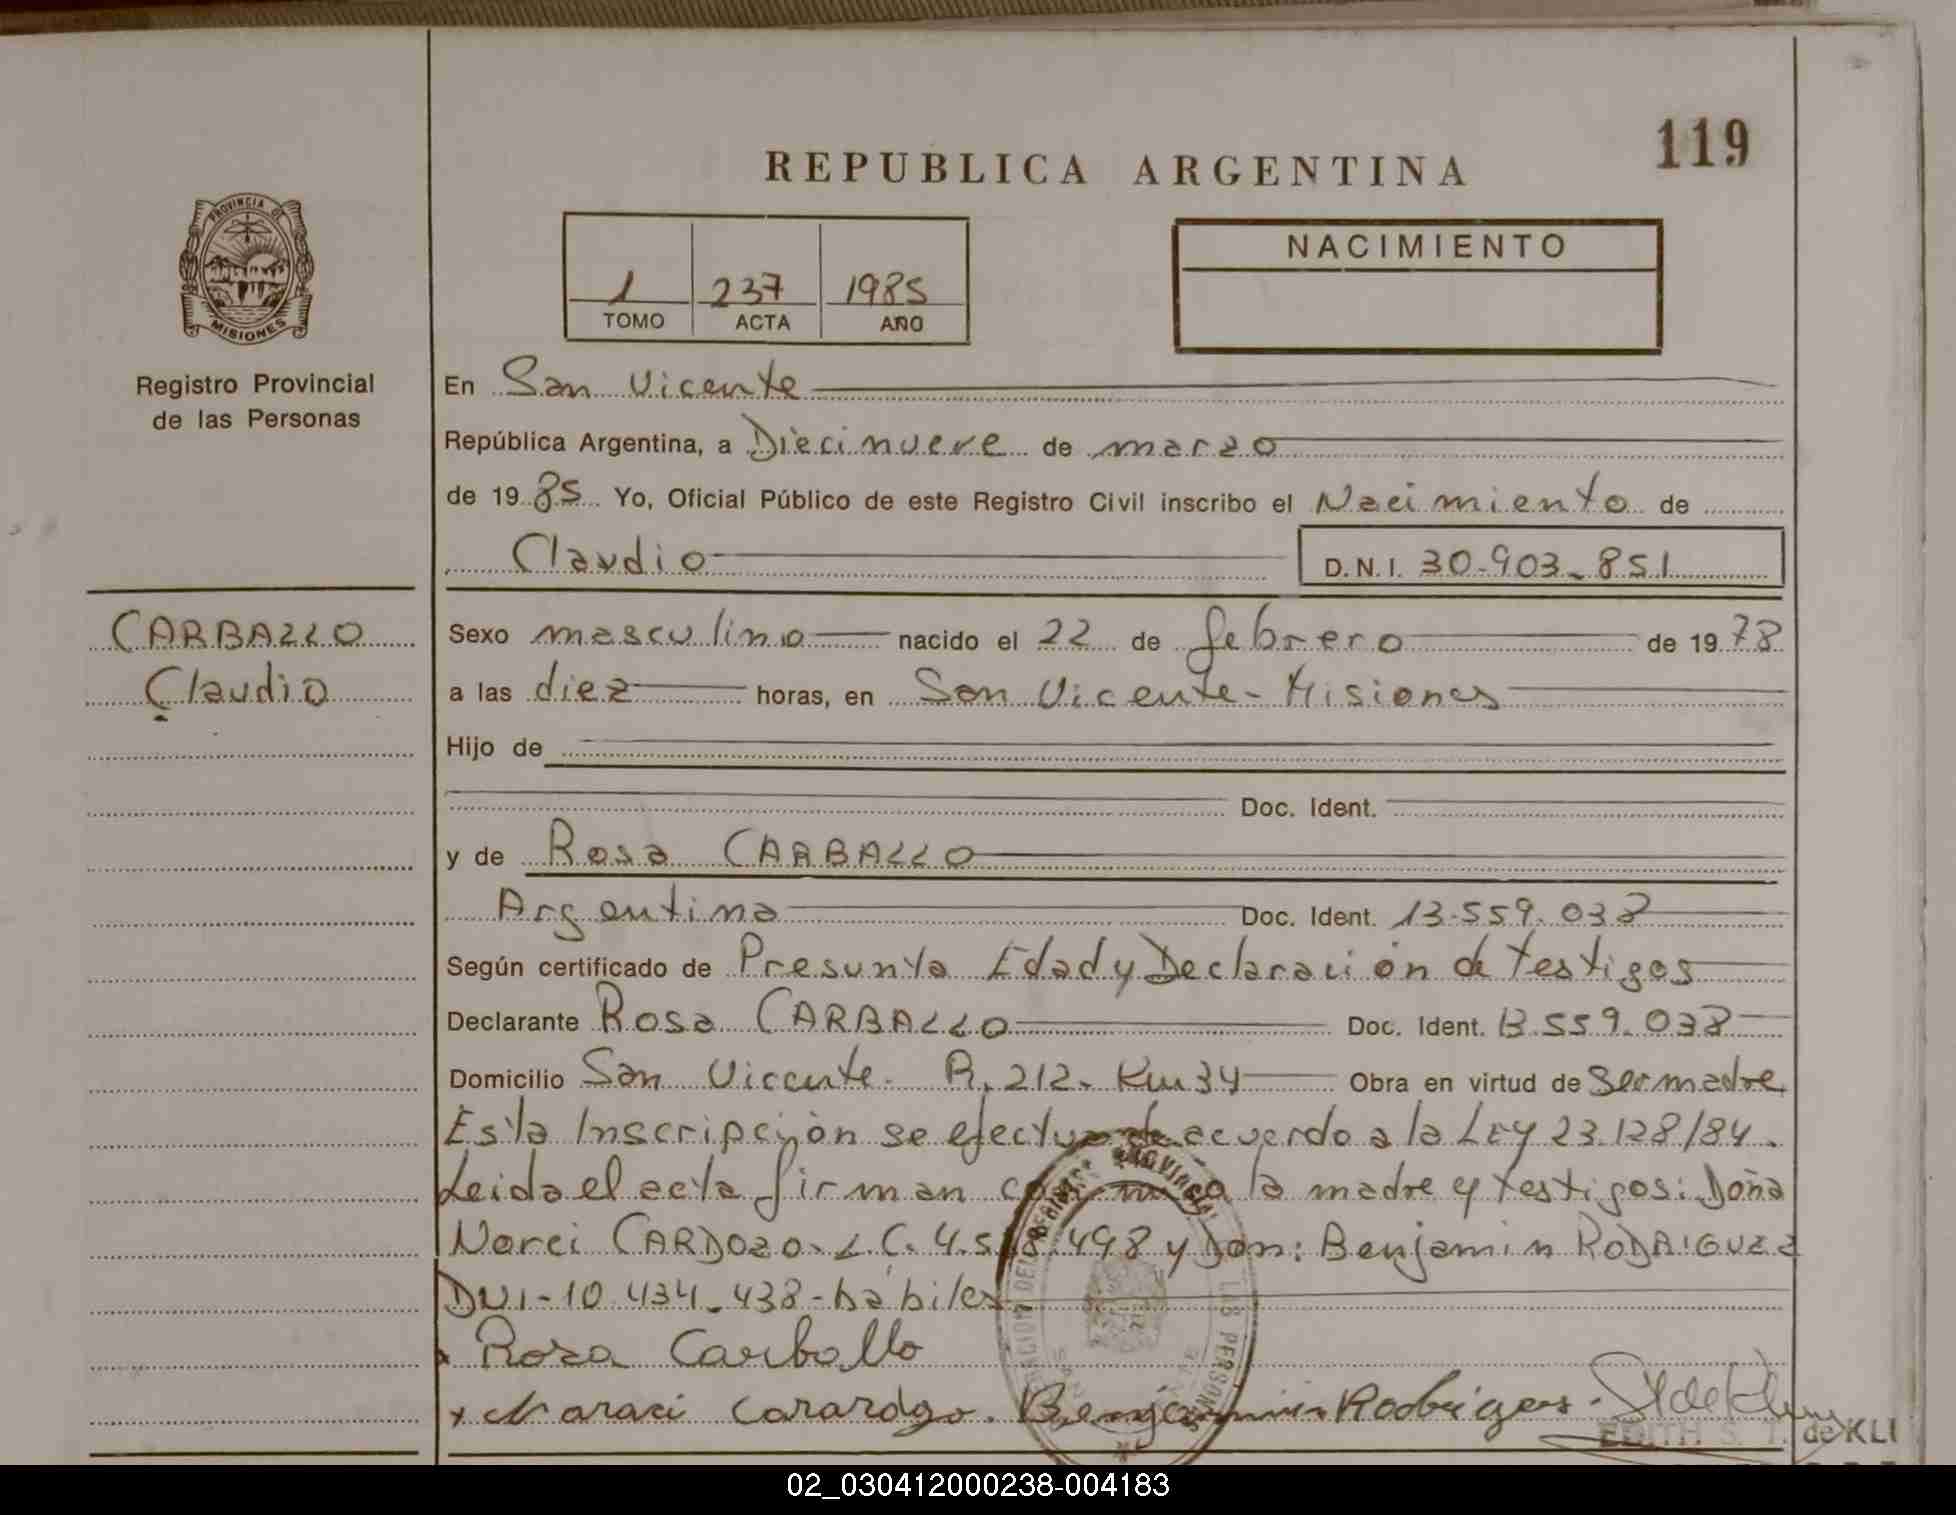 119
REPUBLICA ARGENTINA
PROVINCIA DE
MISIONES
Registro Provincial
de las Personas
1 237 1985
TOMO ACTA AÑO
NACIMIENTO
En San Vicente
República Argentina, a Diecinueve de marzo
de 1985 Yo, Oficial Público de este Registro Civil inscribo el Nacimiento de
Claudio D.N.I. 30.903.851
CARBALLO
Claudio
Sexo masculino nacido el 22 de febrero de 1978
a las diez horas, en San Vicente - Misiones
Hijo de
Doc. Ident.
y de Rosa CARBALLO
Argentina Doc. Ident. 13.559.038
Según certificado de Presunta Edad y Declaración de testigos
Declarante Rosa CARBALLO Doc. Ident. 13.559.038
Domicilio San Vicente. R. 212. Km 34 Obra en virtud de ser madre
Esta Inscripción se efectua de acuerdo a la LEY 23.128/84.
Leida el acta firman conmigo la madre y testigos: Doña
Narci CARDOZO. L.C. 4. 498 y Don: Benjamin RODRIGUEZ
DNI-10.434.438-hábiles
Rosa Carballo
x Benjamin EDITH S. T. de KLI
02_030412000238-004183